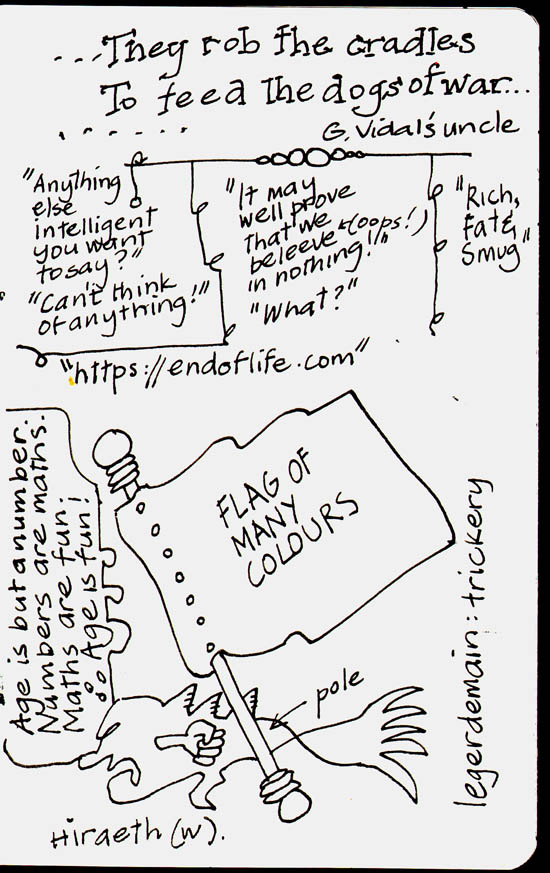 ...They rob the cradles
To feed the dogs of war...
G. Vidal's uncle
"Anything
else
intelligent
you want
to say?"
"Can't think
of anything!"
"It may
well prove
that we
beleeve (oops!)
in nothing!"
"What?"
"Rich,
Fat &
Smug"
"https://endoflife.com"
Age is but a number.
Numbers are maths.
Maths are fun.
∴ Age is fun!
FLAG OF
MANY
COLOURS
pole
legerdemain: trickery
Hiraeth (W).